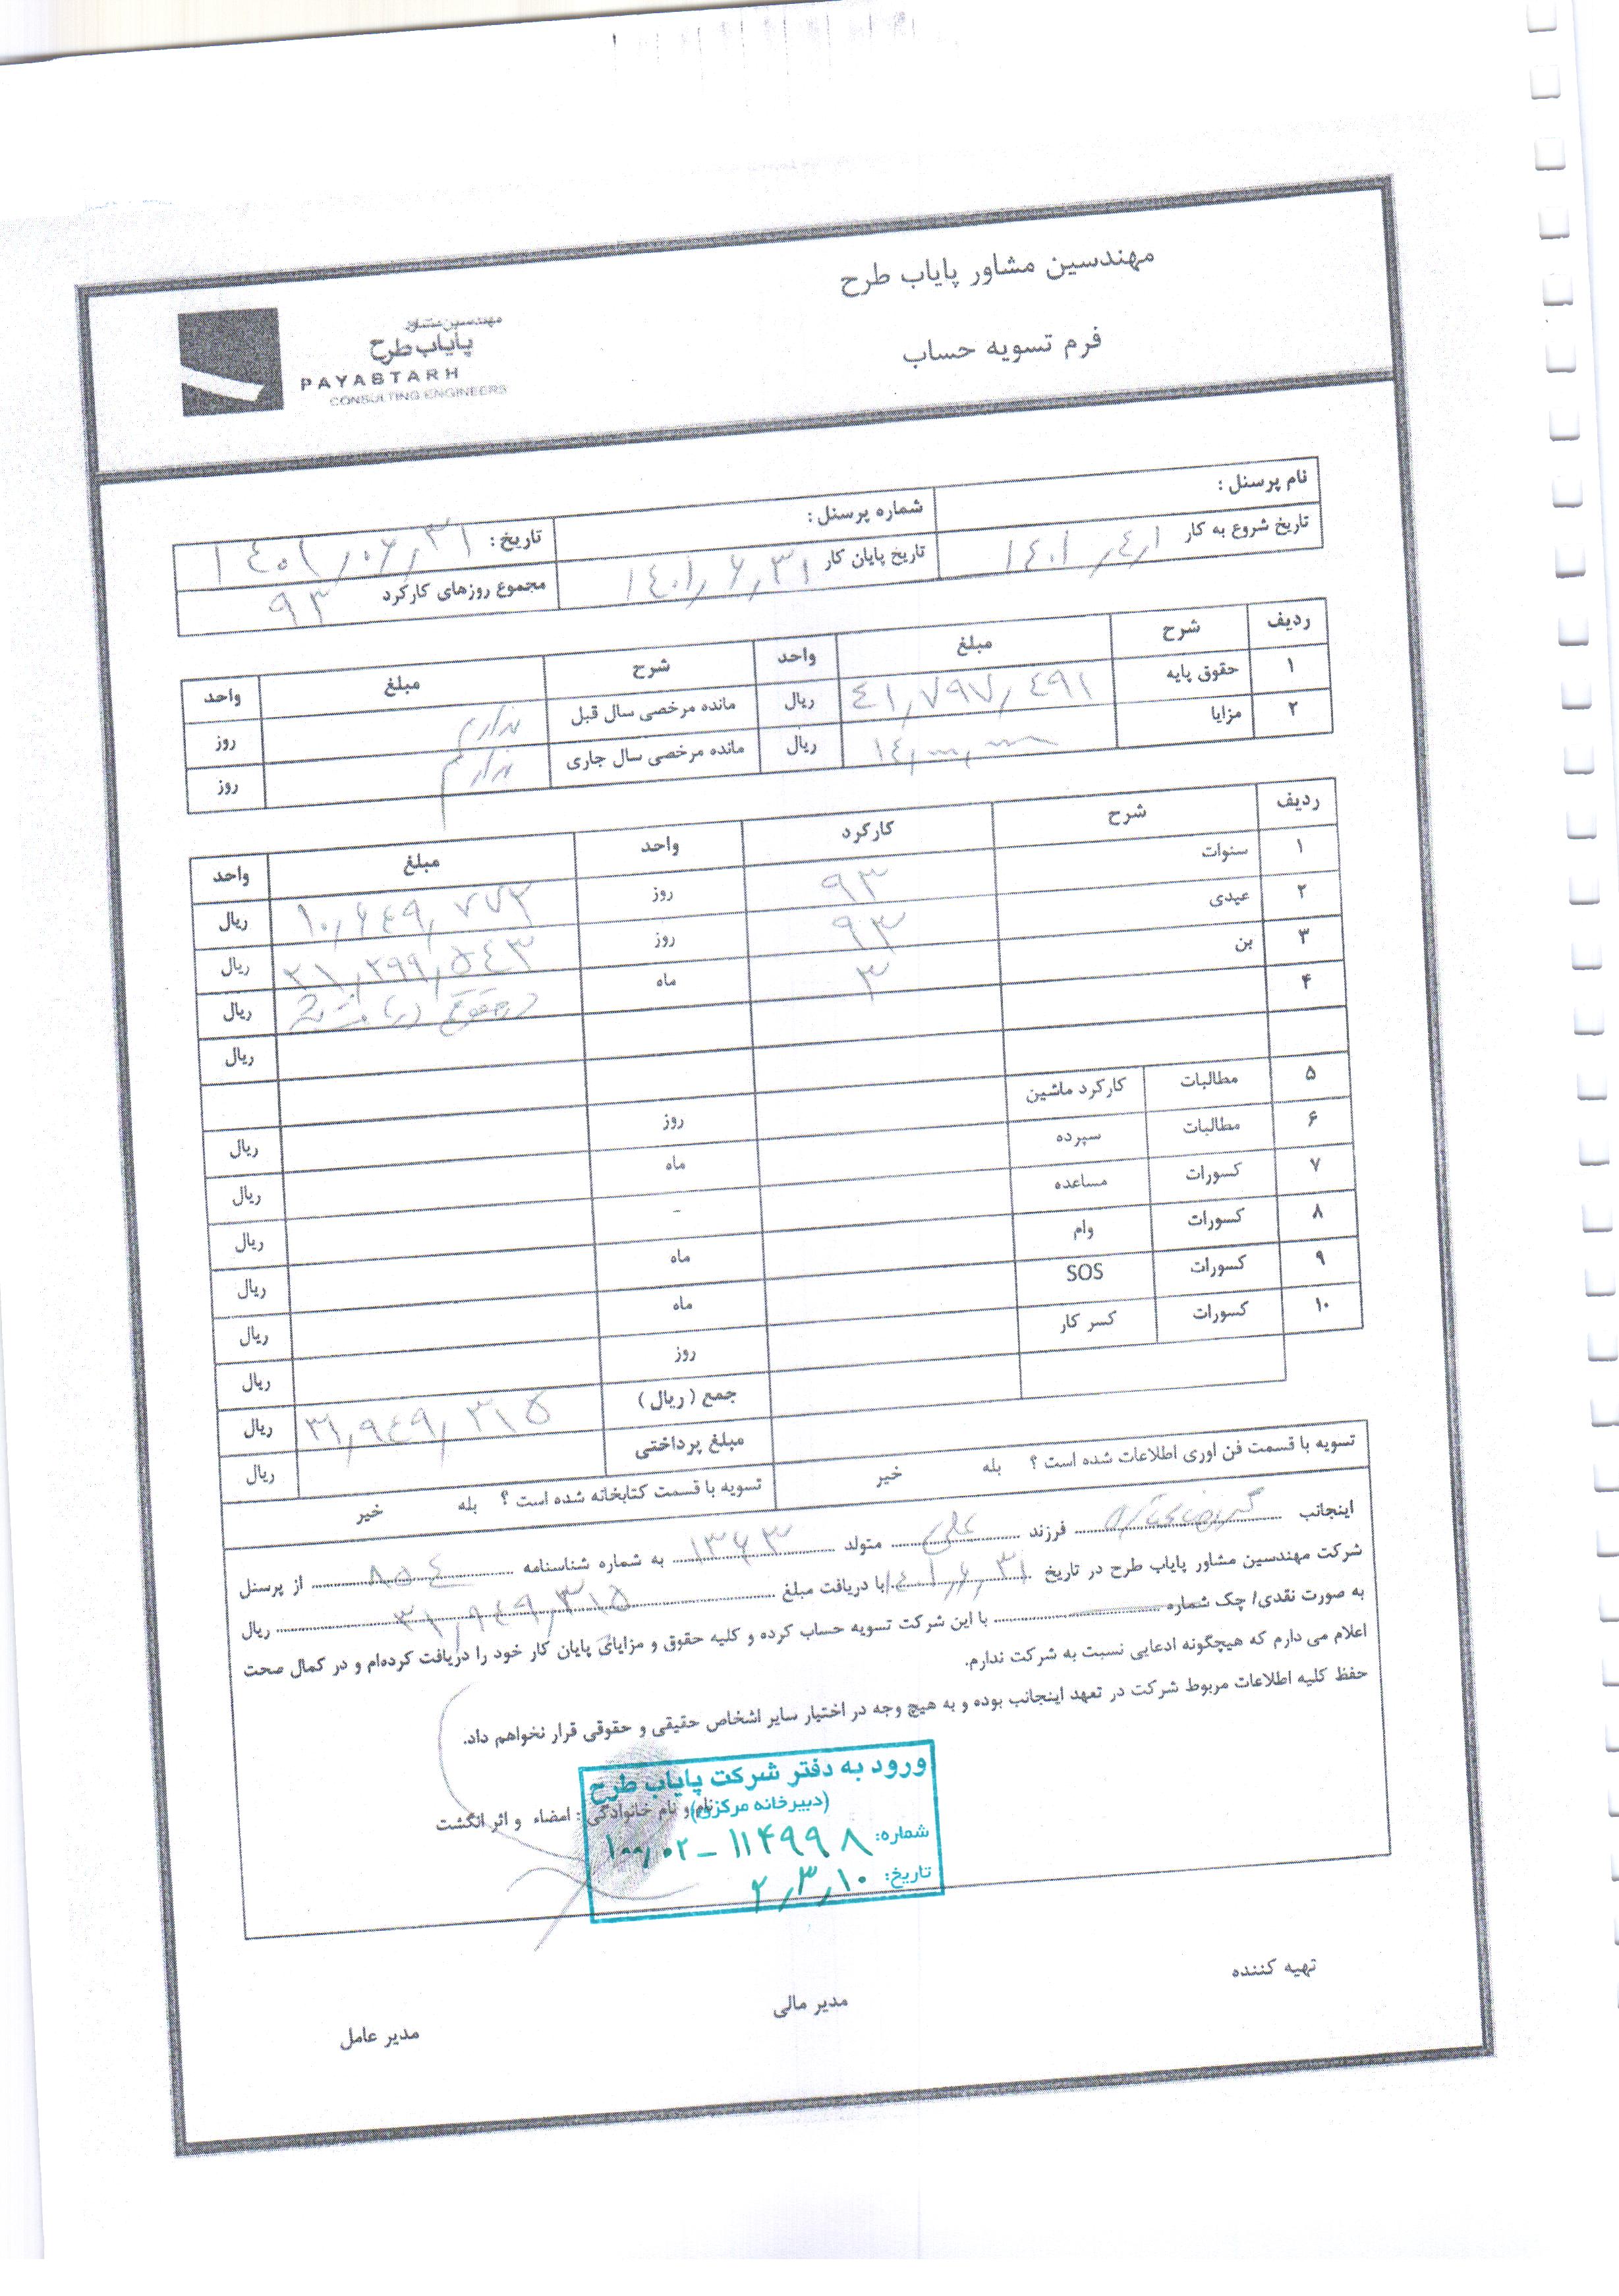 مهندسین مشاور پایاب طرح
فرم تسویه حساب
مهندسین مشاور
پایاب طرح
PAYABTARH
CONSULTING ENGINEERS
نام پرسنل : شماره پرسنل : تاریخ : ۱۴۰۱,۰۶,۳۱
تاریخ شروع به کار ۱۴۰۱,۴,۱ تاریخ پایان کار ۱۴۰۱,۶,۳۱ مجموع روزهای کارکرد ۹۳
ردیف شرح مبلغ واحد شرح مبلغ واحد
۱ حقوق پایه ۴۱,۷۹۷,۴۹۱ ریال مانده مرخصی سال قبل ندارم روز
۲ مزایا ۱۴,۰۰۰,۰۰۰ ریال مانده مرخصی سال جاری ندارم روز
ردیف شرح کارکرد واحد مبلغ واحد
۱ سنوات ۹۳ روز ۱۰,۶۴۹,۷۷۲ ریال
۲ عیدی ۹۳ روز ۲۱,۲۹۹,۵۴۳ ریال
۳ بن ۳ ماه در حقوق دریافت شد ریال
۴ ریال
۵ مطالبات کارکرد ماشین روز ریال
۶ مطالبات سپرده ماه ریال
۷ کسورات مساعده - ریال
۸ کسورات وام ماه ریال
۹ کسورات SOS ماه ریال
۱۰ کسورات کسر کار روز ریال
جمع (ریال) ۳۱,۹۴۹,۳۱۵ ریال
مبلغ پرداختی ریال
تسویه با قسمت فن اوری اطلاعات شده است ؟ بله خیر تسویه با قسمت کتابخانه شده است ؟ بله خیر
اینجانب فرزند علی متولد ۱۳۶۳ به شماره شناسنامه ۸۵۴ از پرسنل
شرکت مهندسین مشاور پایاب طرح در تاریخ ۱۴۰۱,۶,۳۱ با دریافت مبلغ ۳۱,۹۴۹,۳۱۵ ریال
به صورت نقدی/ چک شماره با این شرکت تسویه حساب کرده و کلیه حقوق و مزایای پایان کار خود را دریافت کرده‌ام و در کمال صحت
اعلام می دارم که هیچگونه ادعایی نسبت به شرکت ندارم.
حفظ کلیه اطلاعات مربوط شرکت در تعهد اینجانب بوده و به هیچ وجه در اختیار سایر اشخاص حقیقی و حقوقی قرار نخواهم داد.
نام و نام خانوادگی : امضاء و اثر انگشت
ورود به دفتر شرکت پایاب طرح
(دبیرخانه مرکزی)
شماره: ۱۰۰,۰۲-۱۱۴۹۹۸
تاریخ: ۲,۳,۱۰
تهیه کننده مدیر مالی مدیر عامل